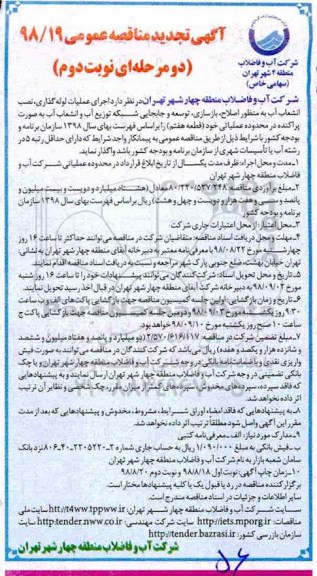 آگهی تجدید مناقصه عمومی ۹۸/۱۹
(دو مرحله‌ای نوبت دوم)
شرکت آب و فاضلاب
منطقه ۴ شهر تهران
(سهامی خاص)
شرکت آب و فاضلاب منطقه چهار شهر تهران در نظر دارد اجرای عملیات لوله‌گذاری، نصب
انشعاب آب به منظور اصلاح، بازسازی، توسعه و جابجایی شبکه توزیع آب و انشعاب آب به صورت
پراکنده در محدوده عملیاتی خود (قطعه هفتم) را براساس فهرست بهای سال ۱۳۹۸ سازمان برنامه و
بودجه کشور با شرایط ذیل از طریق مناقصه عمومی به پیمانکار واجد شرایط که دارای حداقل رتبه ۵ در
رشته آب یا تأسیسات شهری از سازمان برنامه و بودجه کشور باشد واگذار نماید.
۱-مدت و محل اجراء: ظرف مدت یکسال از تاریخ ابلاغ قرارداد در محدوده عملیاتی شرکت آب و
فاضلاب منطقه چهار شهر تهران
۲-مبلغ برآوردی مناقصه ۸۰/۲۲۰/۵۳۷/۲۴۸ معادل (هشتاد میلیارد و دویست و بیست میلیون و
پانصد و سی و هفت هزار و دویست و چهل و هشت) ریال براساس فهرست بهای سال ۱۳۹۸ سازمان
برنامه و بودجه
۳-محل اعتبار: از محل اعتبارات جاری شرکت
۴-مهلت و محل دریافت اسناد مناقصه: متقاضیان شرکت در مناقصه می‌توانند حداکثر تا ساعت ۱۶ روز
چهارشنبه مورخ ۹۸/۰۸/۲۲ با معرفی‌نامه معتبر به دبیرخانه آبفای منطقه چهار شهر تهران به نشانی:
تهران خیابان بهشت، ضلع جنوبی پارک شهر مراجعه و نسبت به دریافت اسناد مناقصه اقدام نمایند.
۵-تاریخ و محل تحویل اسناد: شرکت‌کنندگان می‌توانند پیشنهادات خود را تا ساعت ۱۶ روز شنبه
مورخ ۹۸/۰۹/۰۲ به دبیرخانه شرکت آبفای منطقه چهار شهر تهران در قبال اخذ رسید تحویل نمایند.
۶-تاریخ و زمان بازگشایی: اولین جلسه کمیسیون مناقصه جهت بازگشایی پاکت‌های الف و ب ساعت
۹:۳۰ روز یکشنبه مورخ ۹۸/۰۹/۰۳ و دومین جلسه کمیسیون مناقصه جهت بازگشایی پاکت ج
ساعت ۱۰ صبح روز یکشنبه مورخ ۹۸/۰۹/۱۰ خواهد بود.
۷-مبلغ تضمین شرکت در مناقصه: ۲/۵۷۰/۶۱۶/۱۱۷ (دو میلیارد و پانصد و هفتاد میلیون و ششصد
و شانزده هزار و یکصد و هفده) ریال می‌باشد که شرکت کنندگان در مناقصه می‌توانند به صورت فیش
واریزی نقدی و یا ضمانت‌نامه بانکی در وجه شرکت آب و فاضلاب منطقه چهار شهر تهران و یا چک
بانکی تضمینی در وجه شرکت آب و فاضلاب منطقه چهار شهر تهران ارسال نمایند و به پیشنهادهایی
که فاقد سپرده، سپرده‌های مخدوش، سپرده‌های کمتر از میزان مقرر، چک شخصی و نظایر آن ترتیب
اثر داده نخواهد شد.
۸-به پیشنهادهایی که فاقد امضاء، اوراق شرایط، مشروط، مخدوش و پیشنهادهایی که بعد از مدت
مقرر این آگهی واصل شود مطلقا ترتیب اثر داده نخواهد شد.
۹-مدارک مورد نیاز: الف-معرفی‌نامه کتبی
ب-فیش بانکی به مبلغ ۱/۰۹۰/۰۰۰ ریال به حساب جاری شماره ۲-۲۲۰۵۲۲۰-۴۰-۸۰۶ نزد بانک
سامان شعبه بازار به نام شرکت آب و فاضلاب منطقه چهار شهر تهران
۱۰-زمان چاپ آگهی: نوبت اول ۹۸/۸/۱۸ و نوبت دوم ۹۸/۸/۲۰
برگزار کننده مناقصه در رد یا قبول یک یا کلیه پیشنهادها مختار است.
سایر اطلاعات و جزئیات در اسناد مناقصه مندرج است.
سایت شرکت آب و فاضلاب منطقه چهار شهر تهران: htt://t4ww.tppww.ir سایت ملی
مناقصات: http://iets.mporg.ir سایت شرکت مهندسی: http:tender.nww.co.ir سایت
سازمان بازرسی کشور: http://tender.bazrasi.ir
شرکت آب و فاضلاب منطقه چهار شهر تهران